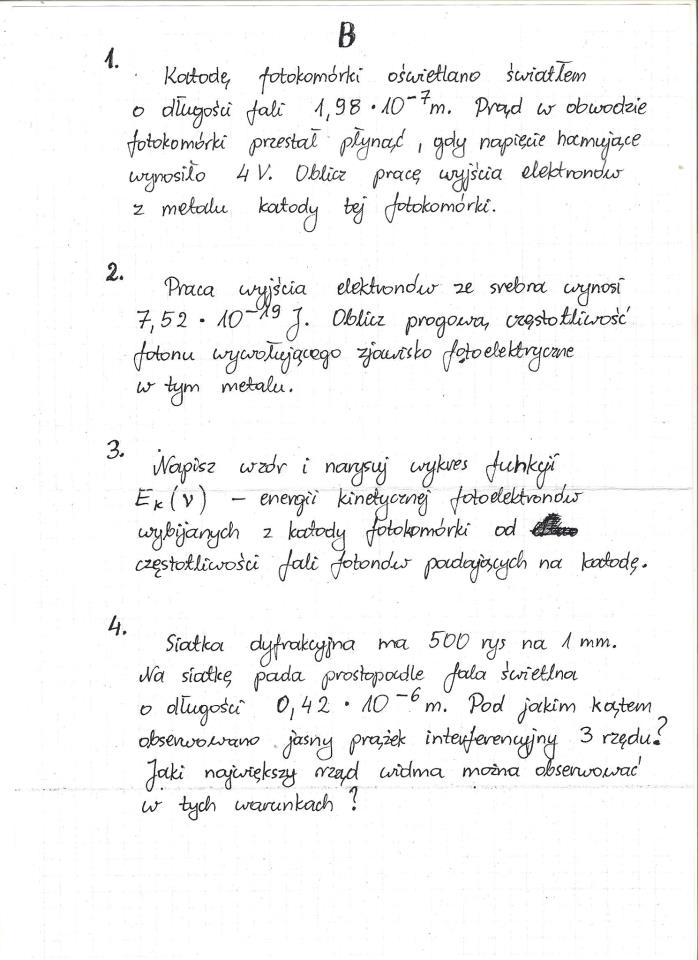 B
1.
Katodę fotokomórki oświetlano światłem
o długości fali 1,98 · 10⁻⁷m. Prąd w obwodzie
fotokomórki przestał płynąć, gdy napięcie hamujące
wynosiło 4 V. Oblicz pracę wyjścia elektronów
z metalu katody tej fotokomórki.
2.
Praca wyjścia elektronów ze srebra wynosi
7,52 · 10⁻¹⁹ J. Oblicz progową częstotliwość
fotonu wywołującego zjawisko fotoelektryczne
w tym metalu.
3.
Napisz wzór i narysuj wykres funkcji
Eₖ(ν) – energii kinetycznej fotoelektronów
wybijanych z katody fotokomórki od
częstotliwości fali fotonów padających na katodę.
4.
Siatka dyfrakcyjna ma 500 rys na 1 mm.
Na siatkę pada prostopadle fala świetlna
o długości 0,42 · 10⁻⁶m. Pod jakim kątem
obserwowano jasny prążek interferencyjny 3 rzędu?
Jaki największy rząd widma można obserwować
w tych warunkach?